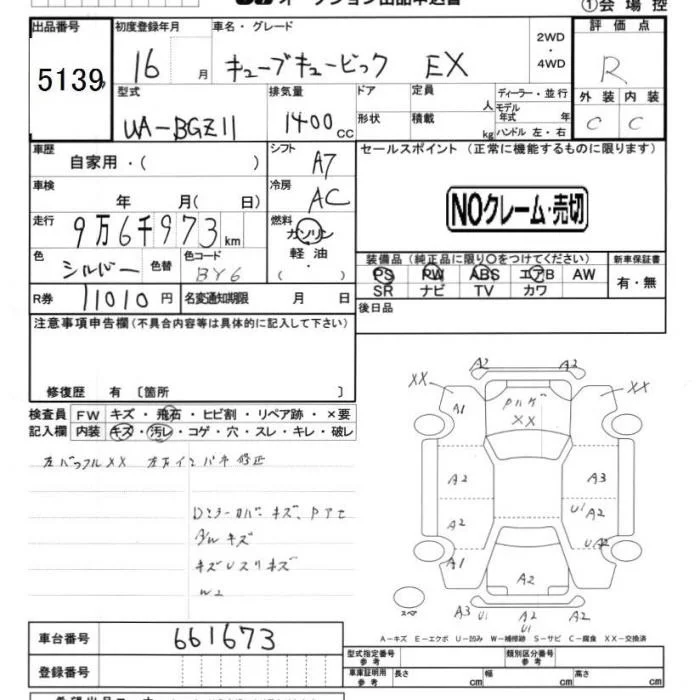 オークション出品申込書
①会場控
出品番号
5139
初度登録年月
16 月
車名・グレード
キューブキュービック EX
2WD
・
4WD
評価点
R
外装 内装
C C
型式
UA-BGZ11
排気量
1400 CC
ドア
形状
定員
人
積載
kg
ディーラー・並行
モデル
年式 年
ハンドル 左・右
車歴
自家用・( )
シフト
A7
セールスポイント (正常に機能するものに限ります)
NOクレーム・売切
車検
年 月( 日)
冷房
AC
走行
9万6千973 km
燃料
ガソリン
軽油
( ・ )
色
シルバー
色替
色コード
BY6
装備品 (純正品に限り○をつけてください)
PS PW ABS エアB AW
SR ナビ TV カワ
新車保証書
有・無
R券
11010 円
名変通知期限
月 日
後日品
注意事項申告欄(不具合内容等は具体的に記入して下さい)
修復歴 有 〔箇所 〕
検査員
記入欄
FW キズ・飛石・ヒビ割・リペア跡・×要
内装 キズ・汚レ・コゲ・穴・スレ・キレ・破レ
左バッフルXX
修正
キズ、Pアセ
A/W キズ
キズUスリキズ
W2
A2 A2
XX XX
A1
XX
A2 A3
A2 U1 A2
U2
A1
A2
スペア
A3 U1 A2 A2
U1
A-キズ E-エクボ U-凹み W-補修跡 S-サビ C-腐食 XX-交換済
車台番号
661673
登録番号
型式指定番号
参考
類別区分番号
参考
車庫証明用
参考
長さ cm 幅 cm 高さ cm